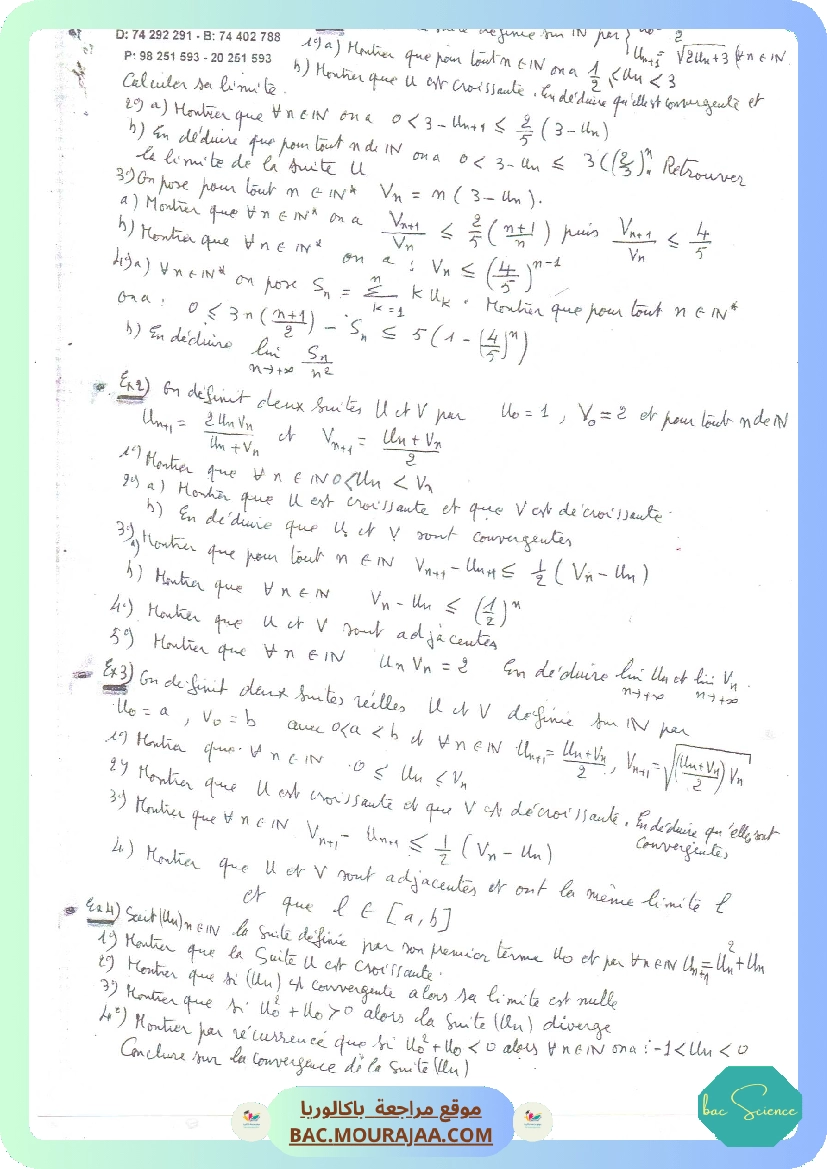 D: 74 292 291 - B: 74 402 788
P: 98 251 593 - 20 251 593
suite définie sur IN par { U0 = 1/2
Un+1 = √(2Un+3) ∀n ∈ IN
1°) a) Montrer que pour tout n ∈ IN on a 1/2 ≤ Un < 3
b) Montrer que U est croissante. En déduire qu'elle est convergente et
Calculer sa limite.
2°) a) Montrer que ∀n ∈ IN on a 0 < 3 - Un+1 ≤ 2/5 (3 - Un)
b) En déduire que pour tout n de IN on a 0 < 3 - Un ≤ 3 (2/5)^n. Retrouver
la limite de la suite U
3°) On pose pour tout n ∈ IN* Vn = n (3 - Un).
a) Montrer que ∀n ∈ IN* on a Vn+1/Vn ≤ 2/5 (n+1/n) puis Vn+1/Vn ≤ 4/5
b) Montrer que ∀n ∈ IN* on a : Vn ≤ (4/5)^n-1
4°) a) ∀n ∈ IN* on pose Sn = Σ k=1 n k Uk. Montrer que pour tout n ∈ IN*
on a : 0 ≤ 3n (n+1/2) - Sn ≤ 5 (1 - (4/5)^n)
b) En déduire lim n→+∞ Sn/n²
Ex2) On définit deux suites U et V par U0 = 1, V0 = 2 et pour tout n de IN
Un+1 = 2UnVn/Un+Vn et Vn+1 = Un+Vn/2
1°) Montrer que ∀n ∈ IN 0 < Un < Vn
2°) a) Montrer que U est croissante et que V est décroissante.
b) En déduire que U et V sont convergentes
3°) a) Montrer que pour tout n ∈ IN Vn+1 - Un+1 ≤ 1/2 (Vn - Un)
b) Montrer que ∀n ∈ IN Vn - Un ≤ (1/2)^n
4°) Montrer que U et V sont adjacentes
5°) Montrer que ∀n ∈ IN Un Vn = 2 En déduire lim n→+∞ Un et lim n→+∞ Vn.
Ex3) On définit deux suites réelles U et V définie sur IN par
U0 = a, V0 = b avec 0<a<b et ∀n ∈ IN Un+1 = Un+Vn/2, Vn+1 = √((Un+Vn/2) Vn)
1°) Montrer que ∀n ∈ IN 0 ≤ Un ≤ Vn
2°) Montrer que U est croissante et que V est décroissante. En déduire qu'elles sont
convergentes
3°) Montrer que ∀n ∈ IN Vn+1 - Un+1 ≤ 1/2 (Vn - Un)
4°) Montrer que U et V sont adjacentes et ont la même limite l
et que l ∈ [a, b]
Ex4) Soit (Un)n∈IN la suite définie par son premier terme U0 et par ∀n ∈ IN Un+1 = Un² + Un
1°) Montrer que la Suite U est croissante.
2°) Montrer que si (Un) est convergente alors sa limite est nulle
3°) Montrer que si U0² + U0 > 0 alors la suite (Un) diverge
4°) Montrer par récurrence que si U0² + U0 < 0 alors ∀n ∈ IN on a : -1 < Un < 0
Conclure sur la convergence de la suite (Un)
موقع مراجعة باكالوريا
BAC.MOURAJAA.COM
bac Science